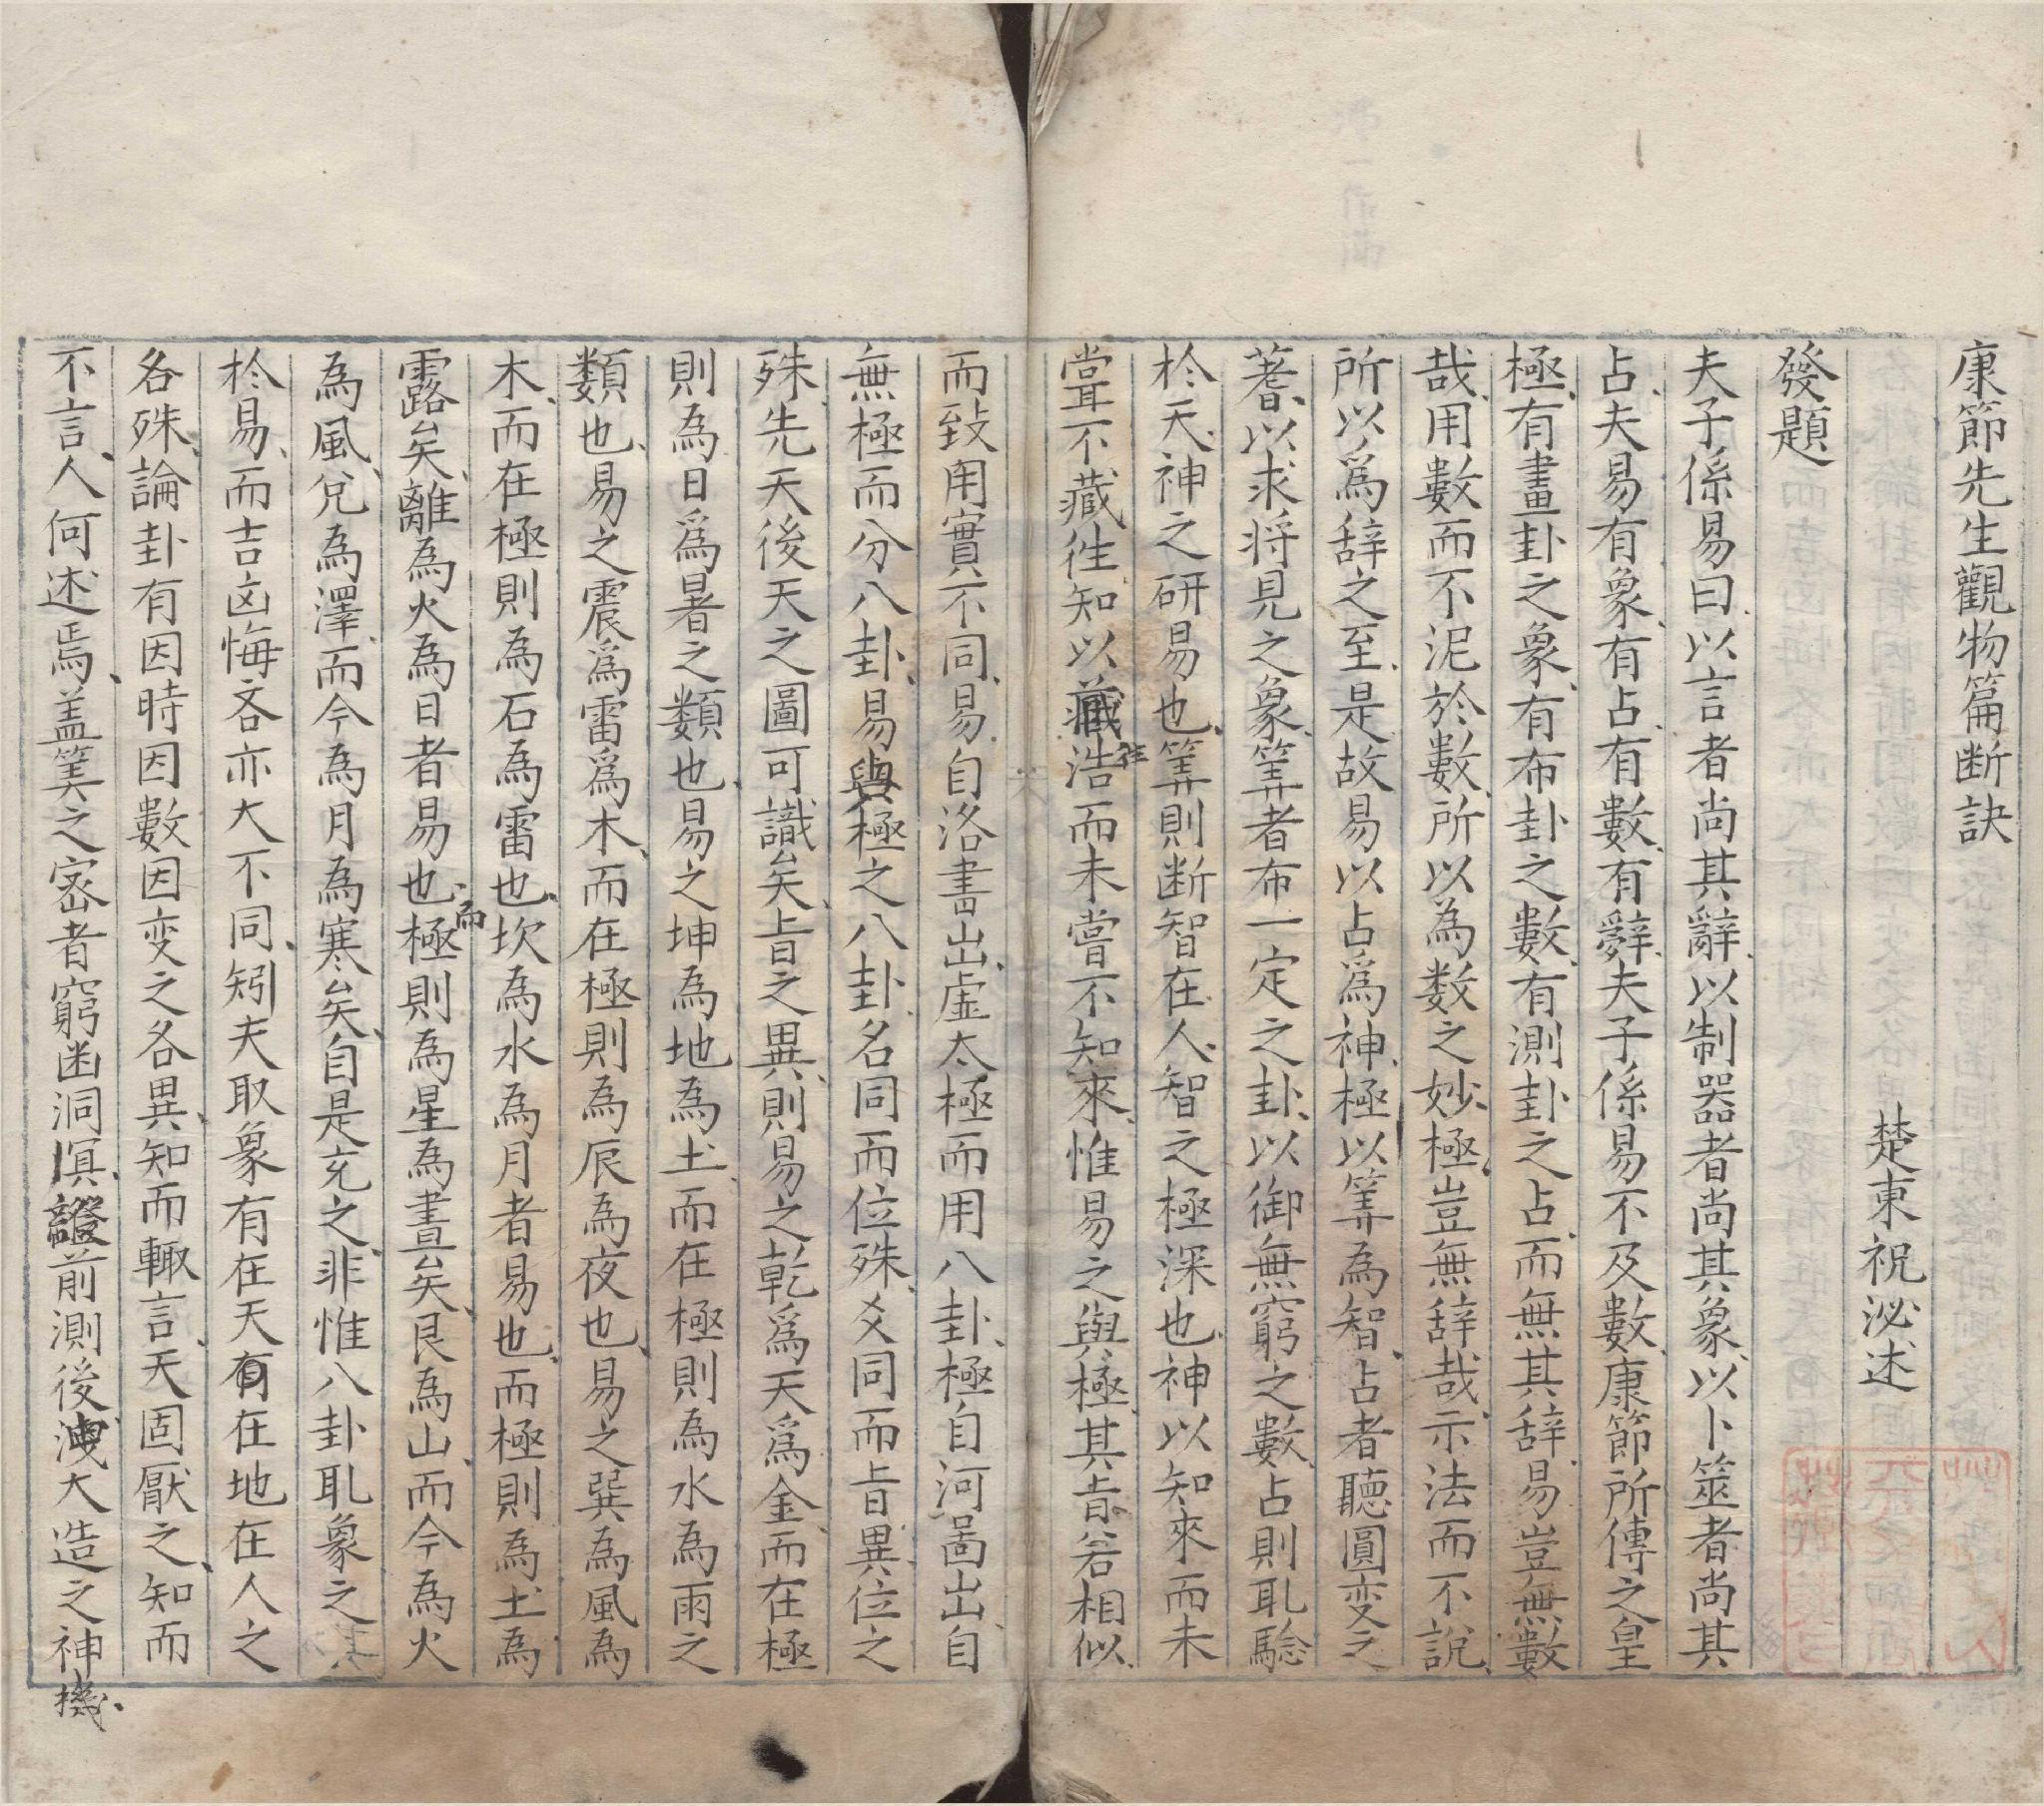 康節先生觀物篇断訣
楚東祝泌述
發題
夫子係易曰以言者尚其辭以制器者尚其象以卜筮者尚其
占夫易有象有占有數有辭夫子係易不及數康節所傳之皇
極有畫卦之象有布卦之數有測卦之占而無其辞易豈無數
哉用數而不泥於數所以為数之妙極豈無辞哉示法而不說
所以爲辞之至是故易以占爲神極以筭為智占者聽圓变之
蓍以求将見之象筭者布一定之卦以御無窮之數占則耴騐
扵天神之研易也筭則断智在人智之極深也神以知來而未
甞不藏徃知以藏浩徃而未嘗不知來惟易之與極其㫖若相似
而致用實不同易自洛書出虚太極而用八卦極自河啚出自
無極而分八卦易與極之八卦名同而位殊爻同而㫖異位之
殊先天後天之圖可識矣㫖之異則易之乾爲天爲金而在極
則為日爲暑之類也易之坤為地為土而在極則為水為雨之
類也易之震爲雷爲木而在極則為辰為夜也易之巽為風為
木而在極則為石為雷也坎為水為月者易也而極則為土為
露矣離為火為日者易也而極則為星為晝矣艮為山而今為火
為風兌為澤而今為月為寒矣自是充之非惟八卦耴象之
扵易而吉凶悔吝亦大不同矧夫取象有在天有在地在人之
各殊論卦有因時因數因变之各異知而輙言天固厭之知而
不言人何述焉盖筭之宻者窮幽洞㝠證前測後洩大造之神機